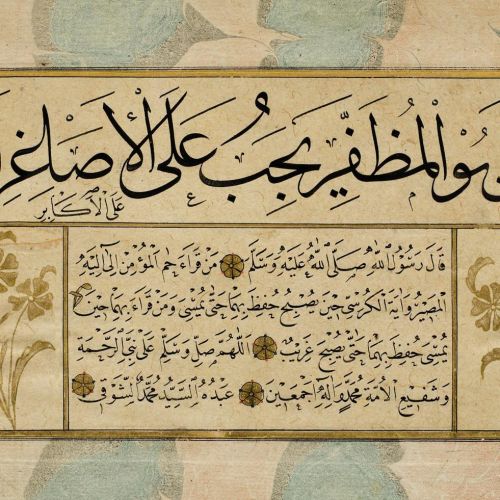 هو المظفر يجب على الأصاغر
على الأكابر
قال رسول الله صلى الله عليه وسلم من قراء حم المؤمن إلى إليه
المصير واية الكرسي حين يصبح حفظ بهما حتى يمسى ومن قراء بهما حين
يمسى حفظ بهما حتى يصبح غريب اللهم صل وسلم على نبي الرحمة
وشفيع الأمة محمد وآله اجمعين عبده السيد محمد الشوقي